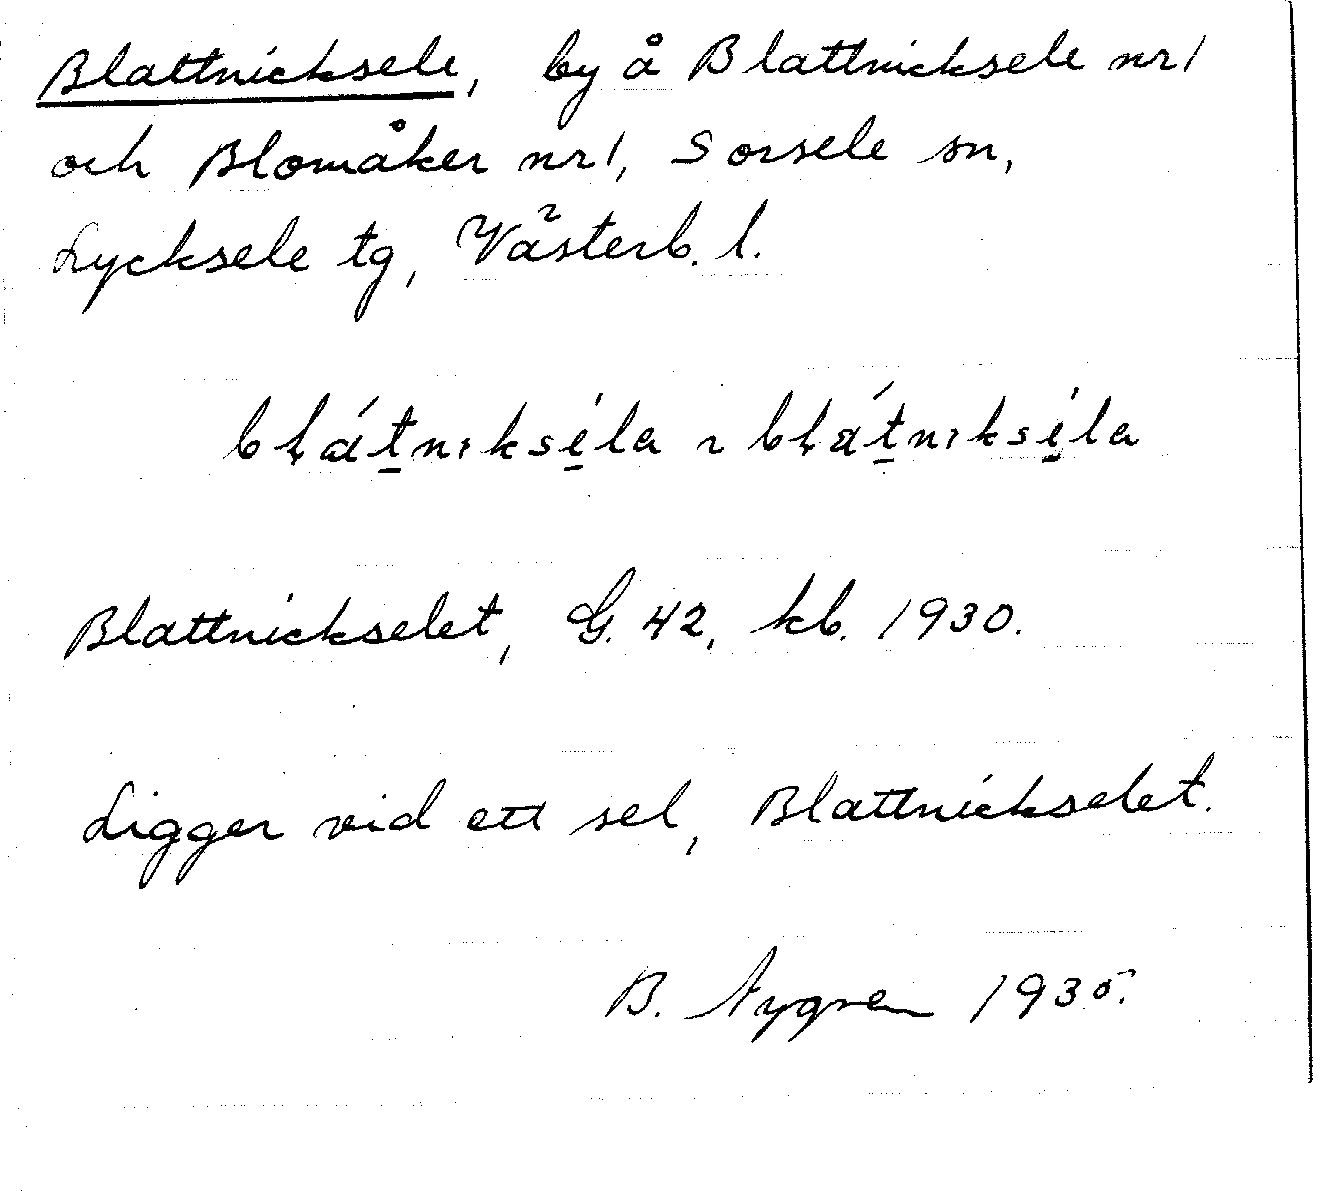 Blattnicksele, by å Blattnicksele nr 1
och Blomåker nr 1, Sorsele sn,
Lycksele tg, Västerb. l.
bɫát̠niksé̠la ~ bɫát̠niksé̠la
Blattnickselet, G. 42, kb. 1930.
Ligger vid ett sel, Blattnickselet.
B. Nygren 1935.